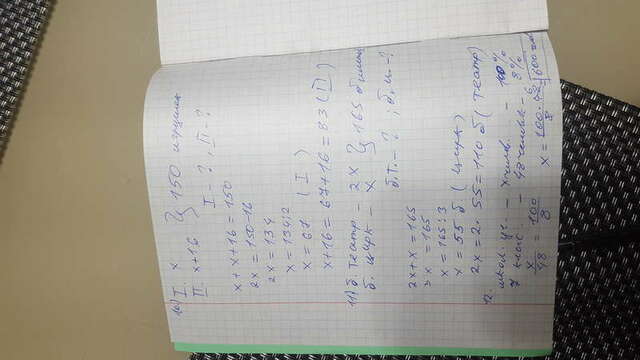 10) I. x } 150 игрушек
II. x+16
I - ? , II - ?
x + x + 16 = 150
2x = 150-16
2x = 134
x = 134:2
x = 67 ( I )
x+16 = 67+16 = 83 ( II )
11) б. театр - 2x } 165 билет
б. цирк - x
б.т. - ? ; б.ц. - ?
2x+x = 165
3x = 165
x = 165:3
x = 55 б. ( цирк )
2x = 2 · 55 = 110 б ( театр )
12.
школ. уч. - x челов. - 100%
7 класс. - 48 человек - 8%
x/48 = 100/8 x = 100·48/8 = 600 челов